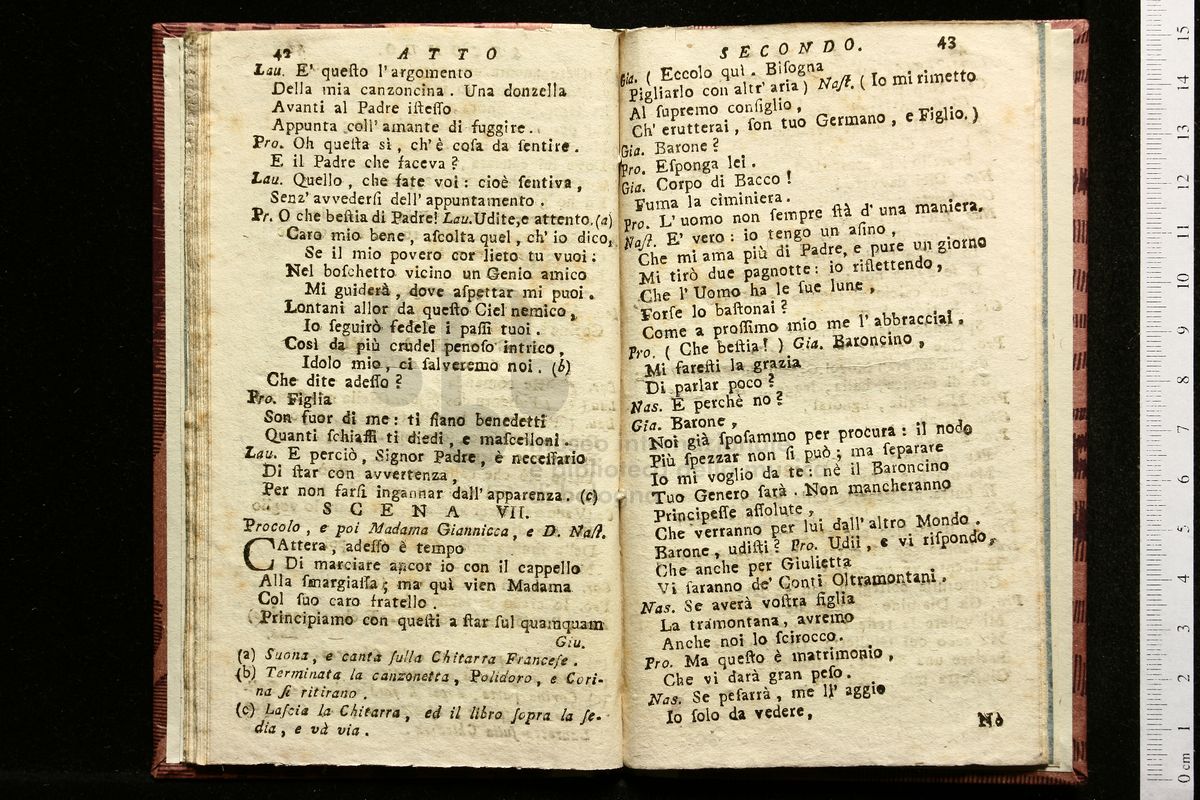 42 ATTO
Lau. E' queſto l'argomento
Della mia canzoncina. Una donzella
Avanti al Padre iſteſſo
Appunta coll' amante di fuggire.
Pro. Oh queſta sì, ch'è coſa da ſentire.
E il Padre che faceva?
Lau. Quello, che fate voi: cioè ſentiva,
Senz' avvederſi dell' appuntamento.
Pr. O che beſtia di Padre! Lau. Udite, e attento. (a)
Caro mio bene, aſcolta quel, ch' io dico,
Se il mio povero cor lieto tu vuoi:
Nel boſchetto vicino un Genio amico
Mi guiderà, dove aſpettar mi puoi.
Lontani allor da queſto Ciel nemico,
Io ſeguirò fedele i paſſi tuoi.
Così da più crudel penoſo intrico,
Idolo mio, ci ſalveremo noi. (b)
Che dite adeſſo?
Pro. Figlia
Son fuor di me: ti ſiano benedetti
Quanti ſchiaffi ti diedi, e maſcelloni.
Lau. E perciò, Signor Padre, è neceſſario
Di ſtar con avvertenza,
Per non farſi ingannar dall' apparenza. (c)
SCENA VII.
Procolo, e poi Madama Giannicca, e D. Naſt.
CAttera, adeſſo è tempo
Di marciare ancor io con il cappello
Alla ſmargiaſſa; ma quì vien Madama
Col ſuo caro fratello.
Principiamo con queſti a ſtar ſul quamquam
Giu.
(a) Suona, e canta ſulla Chitarra Franceſe.
(b) Terminata la canzonetta, Polidoro, e Cori-
na ſi ritirano.
(c) Laſcia la Chitarra, ed il libro ſopra la ſe-
dia, e và via.
SECONDO. 43
Gia. (Eccolo quì. Biſogna
Pigliarlo con altr' aria) Naſt. (Io mi rimetto
Al ſupremo conſiglio,
Ch' erutterai, ſon tuo Germano, e Figlio.)
Gia. Barone?
Pro. Eſponga lei.
Gia. Corpo di Bacco!
Fuma la ciminiera.
Pro. L' uomo non ſempre ſtà d' una maniera.
Naſt. E' vero: io tengo un aſino,
Che mi ama più di Padre, e pure un giorno
Mi tirò due pagnotte: io riflettendo,
Che l' Uomo ha le ſue lune,
Forſe lo baſtonai?
Come a proſſimo mio me l' abbracciai.
Pro. (Che beſtia!) Gia. Baroncino,
Mi fareſti la grazia
Di parlar poco?
Nas. E perchè no?
Gia. Barone,
Noi già ſpoſammo per procura: il nodo
Più ſpezzar non ſi può; ma ſeparare
Io mi voglio da te: nè il Baroncino
Tuo Genero ſarà. Non mancheranno
Principeſſe aſſolute,
Che verranno per lui dall' altro Mondo.
Barone, udiſti? Pro. Udii, e vi riſpondo,
Che anche per Giulietta
Vi ſaranno de' Conti Oltramontani.
Nas. Se averà voſtra figlia
La tramontana, avremo
Anche noi lo ſcirocco.
Pro. Ma queſto è matrimonio,
Che vi darà gran peſo.
Nas. Se peſarrà, me ll' aggio
Io ſolo da vedere,
No